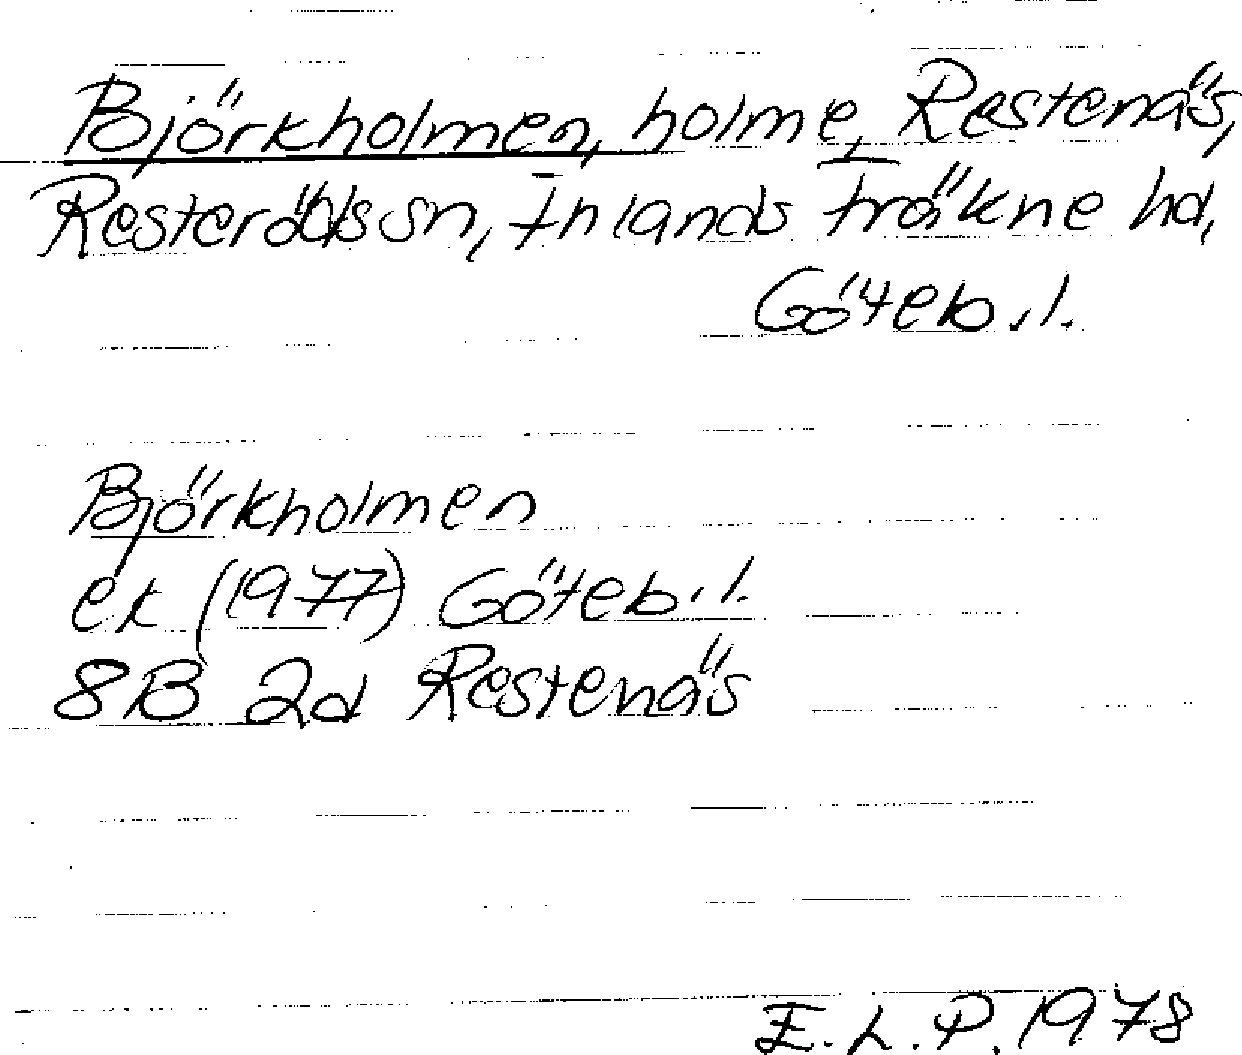 Björkholmen, holme, Restenäs,
Resteröds sn, Inlands Fräkne hd,
Göteb.l.
Björkholmen
ek (1977) Göteb.l.
8B 2d Restenäs
E.L.P. 1978